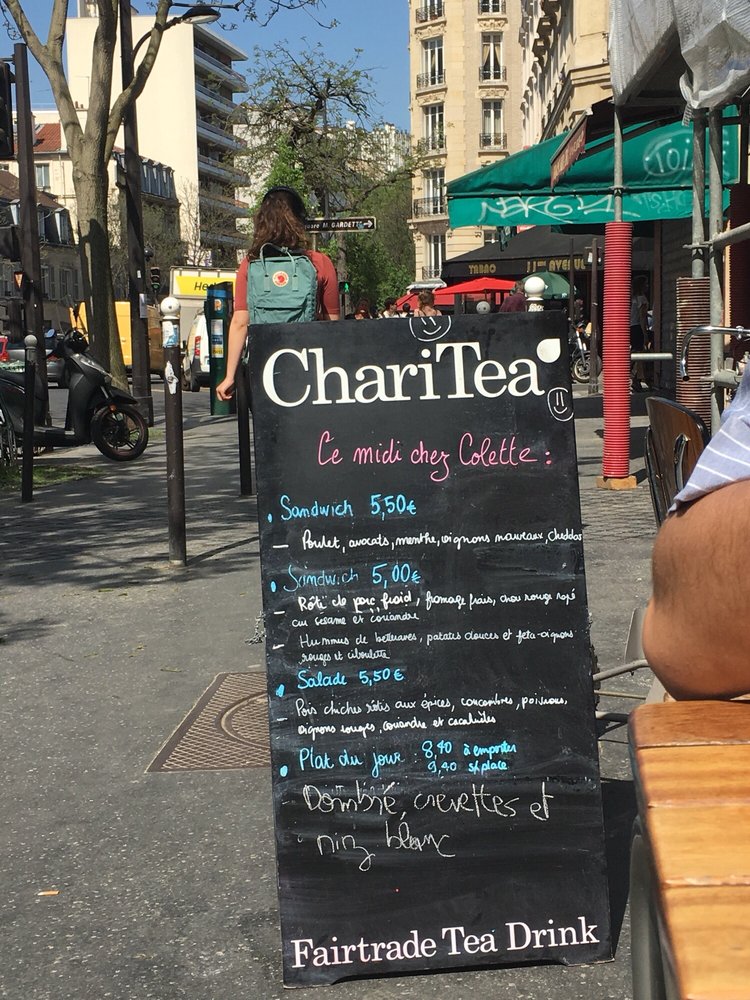 square M. GARDETTE
TABAC
11ème AVENUE
ChariTea
Ce midi chez Colette :
Sandwich 5,50€
— Poulet, avocats, menthe, oignons nouveaux, cheddar
Sandwich 5,00€
— Rôti de porc froid, fromage frais, chou rouge rapé
au sesame et coriandre
— Hummus de betteraves, patates douces et feta-oignons
rouges et ciboulette
Salade 5,50€
— Pois chiches rôtis aux épices, concombres, poivrons,
oignons rouges, coriandre et cacahuètes
Plat du jour : 8,40 à emporter
9,40 s/place
Dombré, crevettes et
riz blanc
Fairtrade Tea Drink